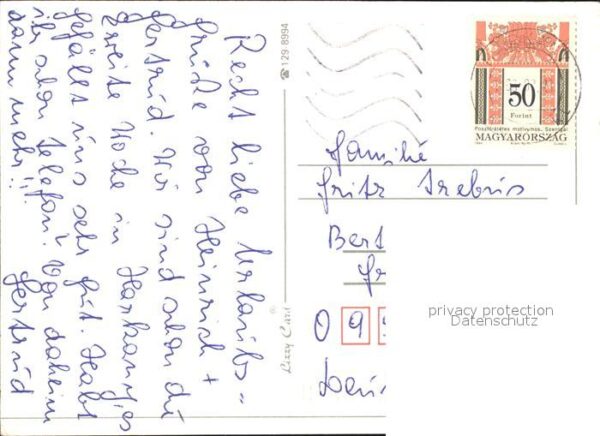 Recht liebe Urlaubs=
grüße von Heinrich +
Gertrúd. Wir sind schon dú
zweite Woche in Harkany, es
gefällt úns sehr gút. Habt
ihr schon Telefon? Von daheim
dann mehr!!!
Gertrúd
☎ 129-8994
Lizzy Card
50
Forint
MAGYARORSZÁG
Familie
Fritz Trebús
Bert
0 9 9
privacy protection
Datenschutz